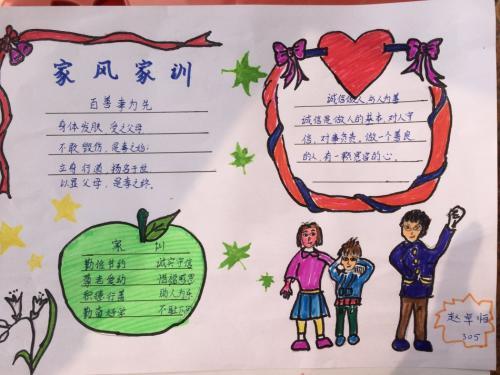 家风家训
百善孝为先
身体发肤,受之父母
不敢毁伤,是孝之始;
立身行道,扬名于世
以显父母,是孝之终。
诚信做人 与人为善
诚信是做人的基本,对人守
信,对事负责。做一个善良
的人,有一颗宽容的心。
家 训
勤俭节约 诚实守信
尊老爱幼 惜福感恩
积德行善 助人为乐
勤奋好学 不耻下问
赵早
305